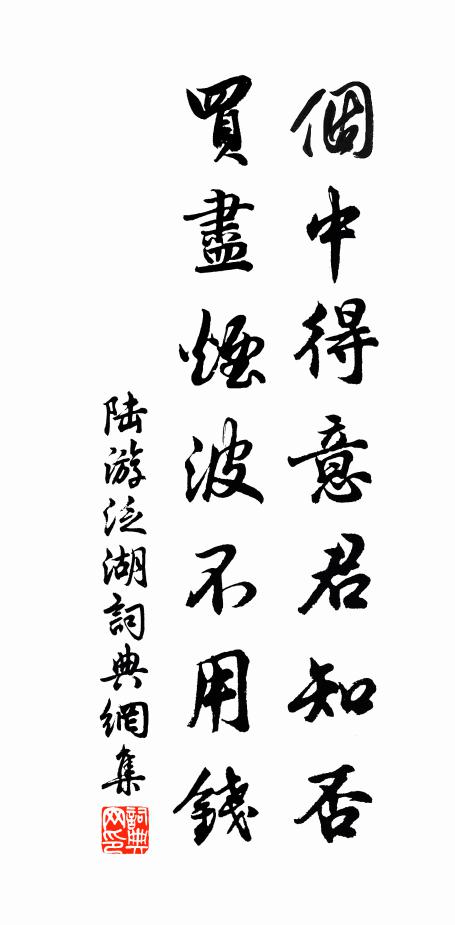 個中得意君知否
買盡煙波不用錢
陸游泛湖詞典網集
詞典網印